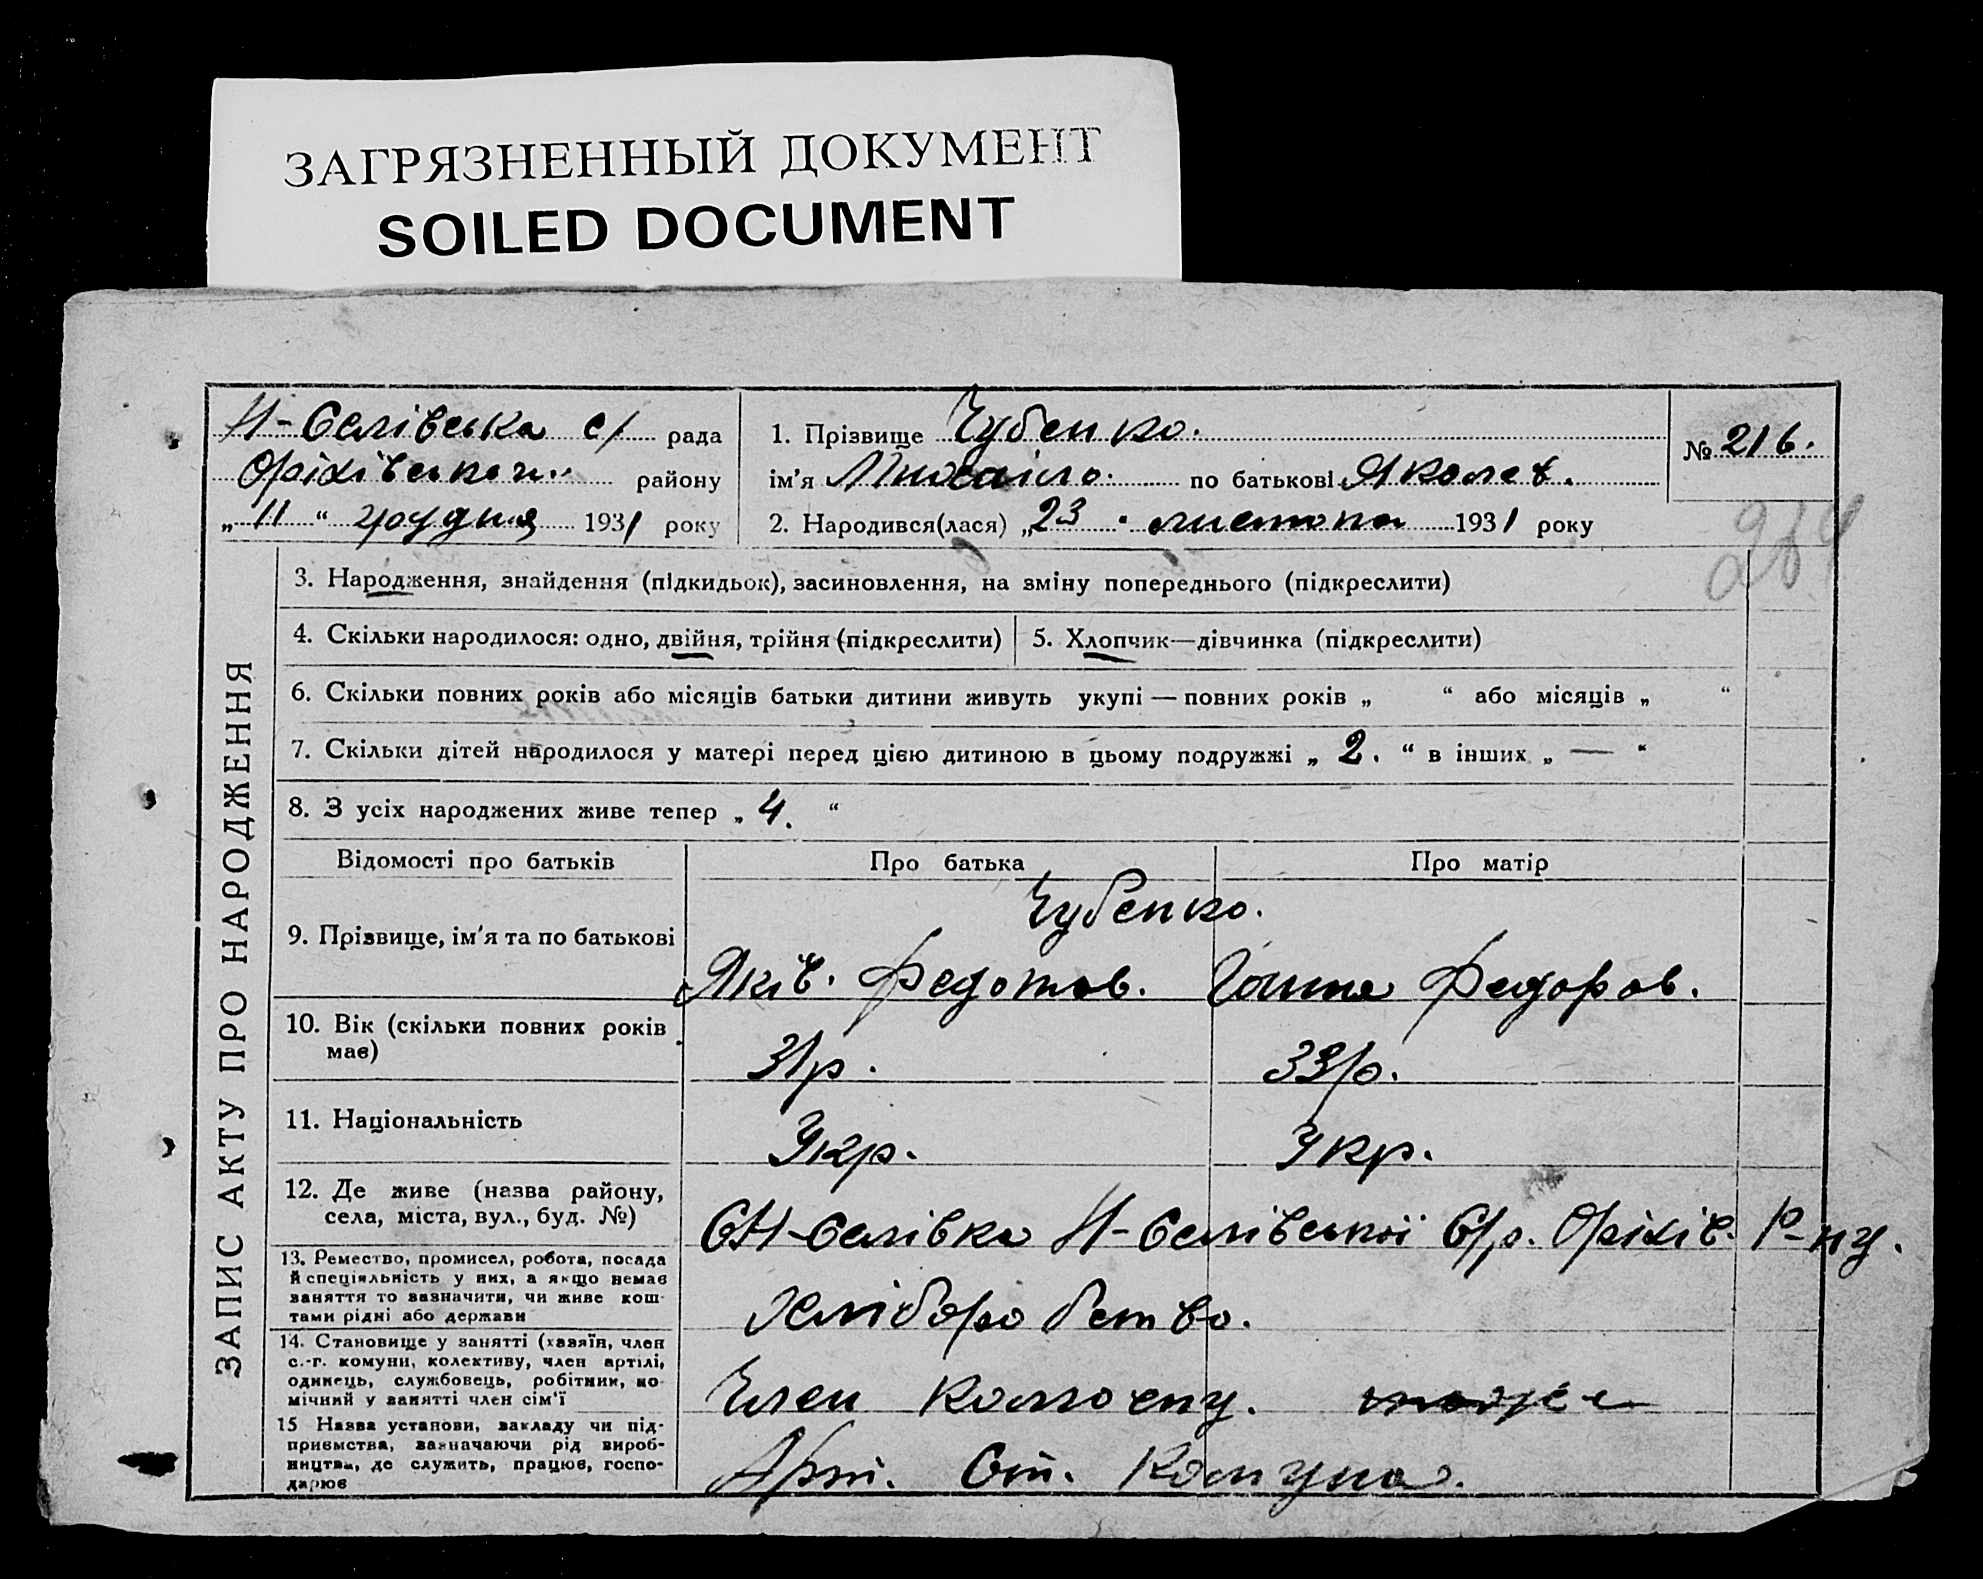 ЗАГРЯЗНЕННЫЙ ДОКУМЕНТ
SOILED DOCUMENT
Н-Селівська с/ рада
Оріхівськог. району
„ 11 “ грудня 1931 року
1. Прізвище Чубенко.
ім'я Михайло. по батькові Яколев.
2. Народився(лася) „23 . листопа 1931 року
№ 216.
284
ЗАПИС АКТУ ПРО НАРОДЖЕННЯ
3. Народження, знайдення (підкидьок), засиновлення, на зміну попереднього (підкреслити)
4. Скільки народилося: одно, двійня, трійня (підкреслити)
5. Хлопчик—дівчинка (підкреслити)
6. Скільки повних років або місяців батьки дитини живуть укупі — повних років „ “ або місяців „ “
7. Скільки дітей народилося у матері перед цією дитиною в цьому подружжі „ 2. “ в інших „ — “
8. З усіх народжених живе тепер „ 4. “
Відомості про батьків Про батька Про матір
9. Прізвище, ім'я та по батькові
Чубенко.
Яків. Федотов. Ганна Федоров.
10. Вік (скільки повних років
має)
31р. 33р.
11. Національність
Укр. Укр.
12. Де живе (назва району,
села, міста, вул., буд. №)
СН-Селівка Н-Селівської С/р. Оріхів. Р-ну.
13. Ремество, промисел, робота, посада
й спеціяльність у них, а якщо немає
заняття то зазначити, чи живе кош-
тами рідні або держави
Хліборобство.
14. Становище у занятті (хазяїн, член
с.-г. комуни, колективу, член артілі,
одинець, службовець, робітник, по-
мічний у занятті член сім'ї
Член колгоспу. тоже
15 Назва установи, закладу чи під-
приємства, зазначаючи рід вироб-
ництва, де служить, працює, госпо-
дарює
Арт. Ст. Комуна.